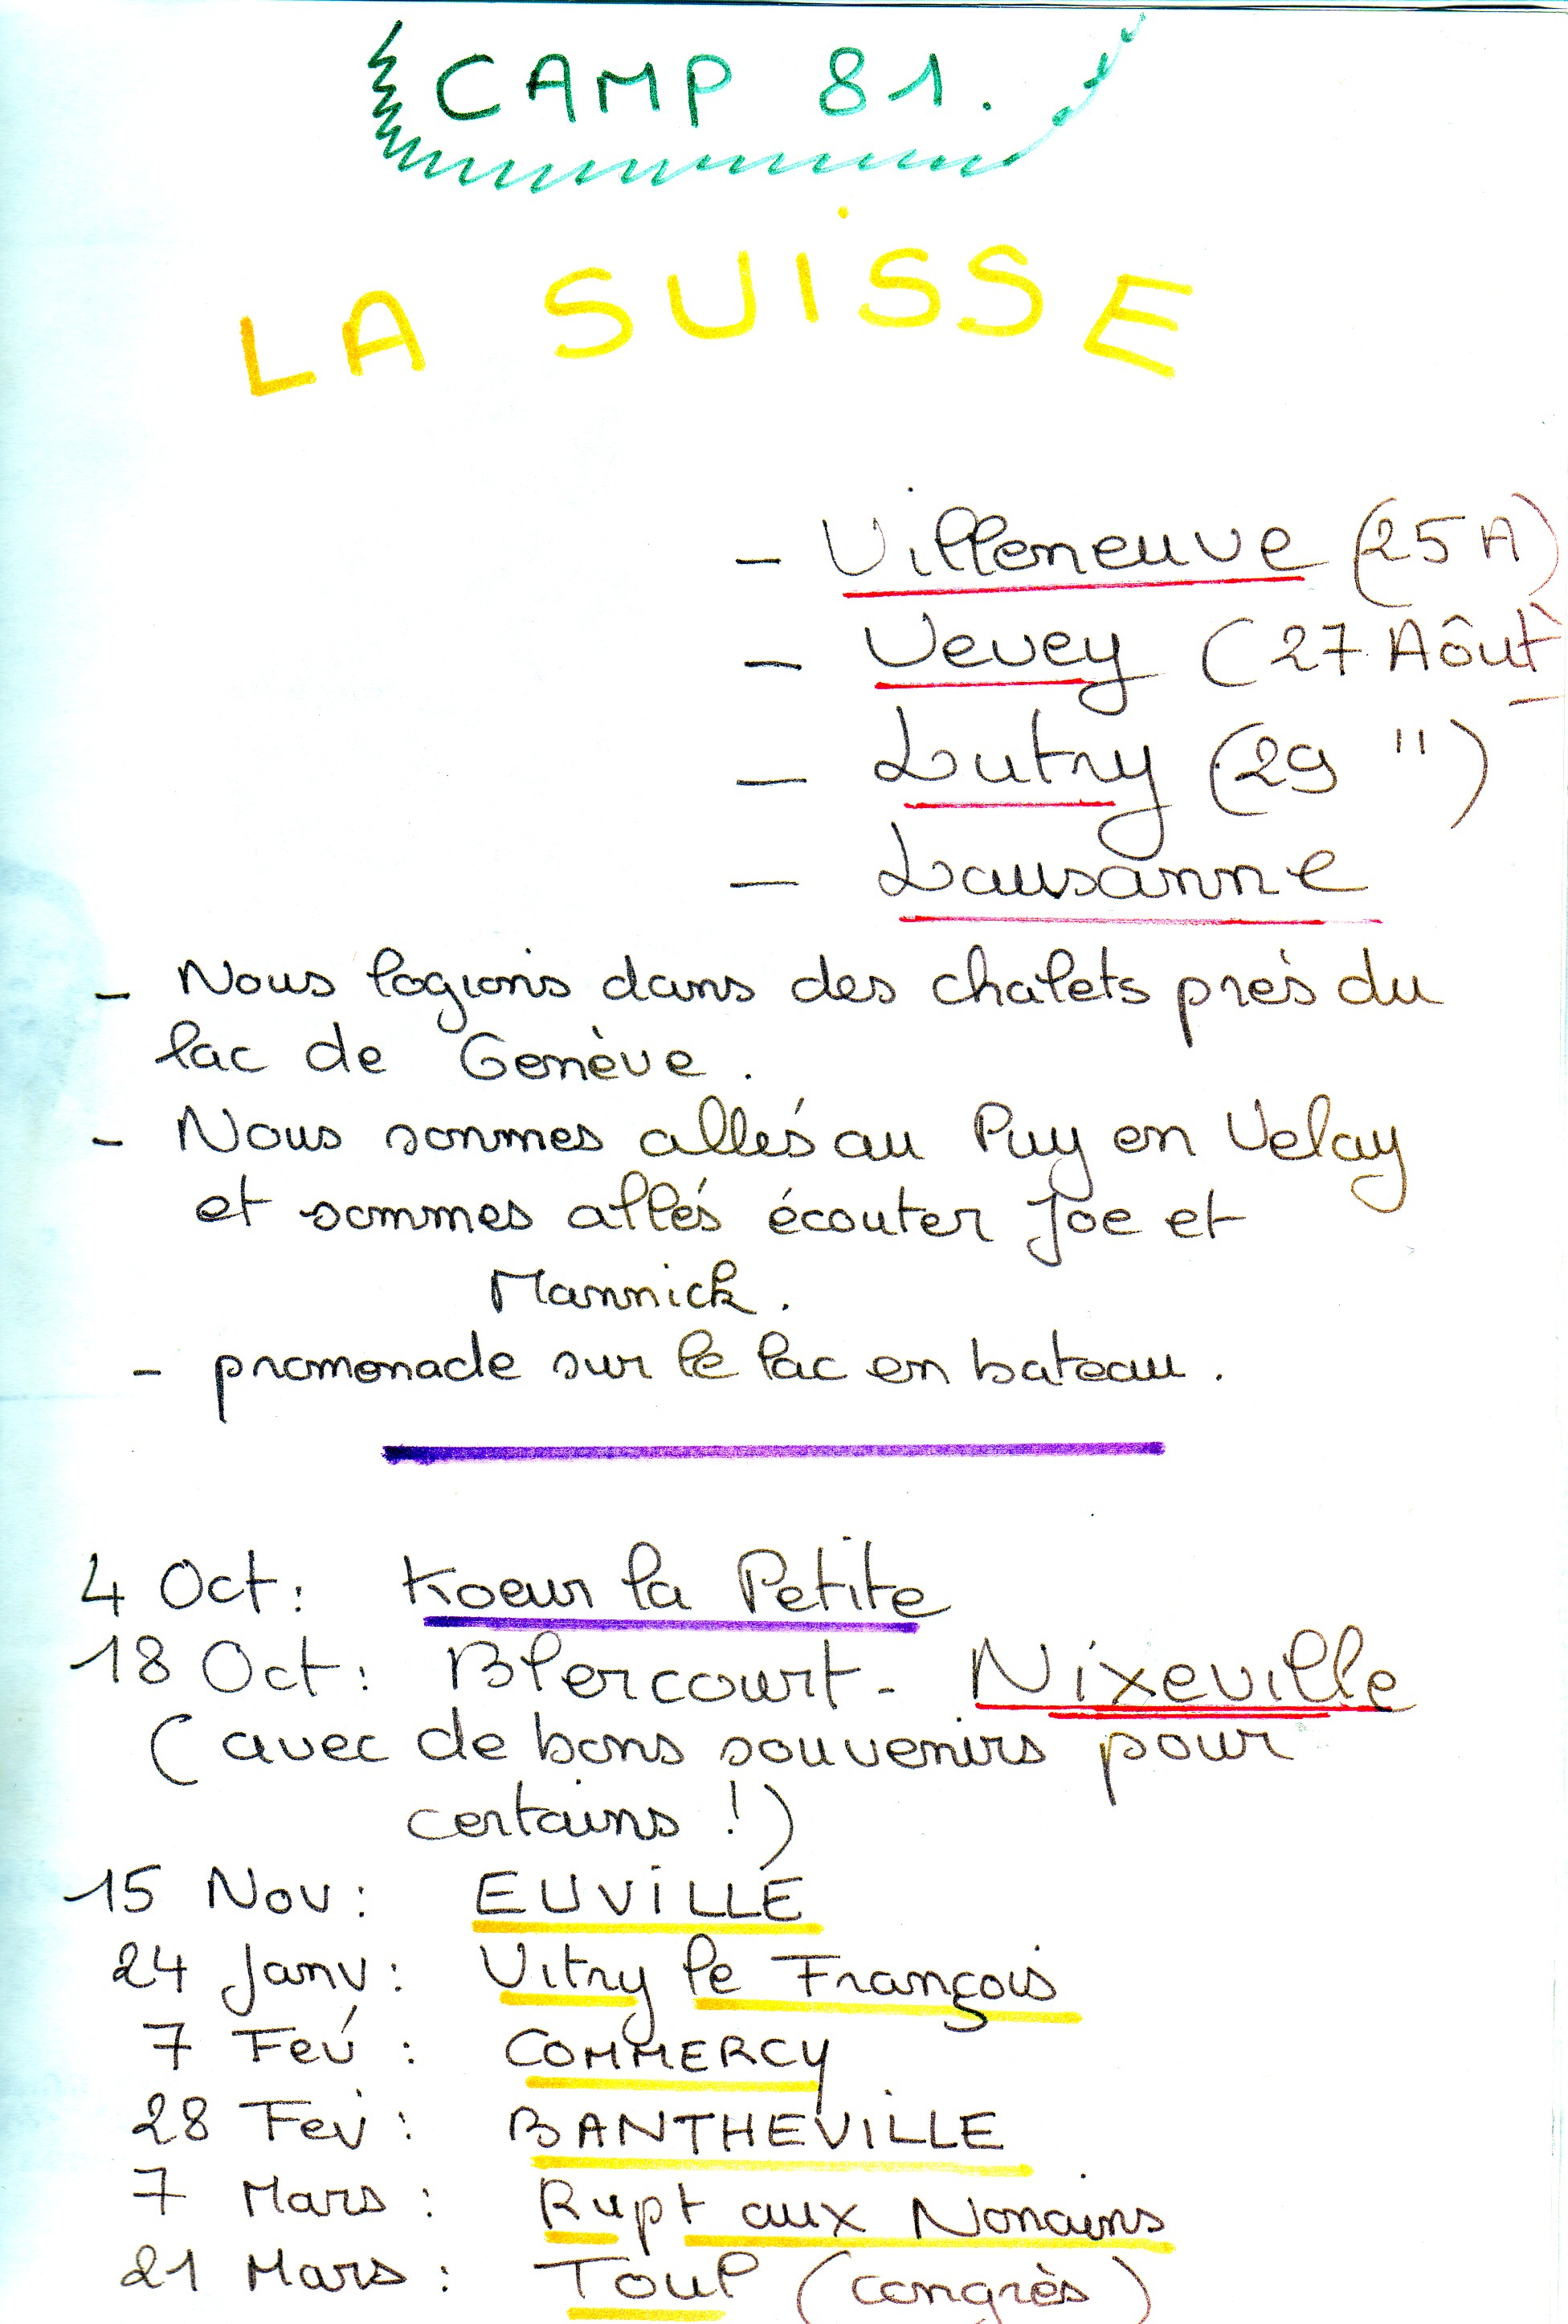 CAMP 81.
LA SUISSE
- Villeneuve (25 A)
- Vevey (27 Aôut)
- Lutry (29 ")
- Lausanne
- Nous logions dans des chalets près du
lac de Genève.
- Nous sommes allés au Puy en Velay
et sommes allés écouter Joe et
Mannick.
- promenade sur le lac en bateau.
4 Oct: Koeur la Petite
18 Oct: Blercourt - Nixeville
(avec de bons souvenirs pour
certains !)
15 Nov: EUVILLE
24 Janv: Vitry le François
7 Fev: COMMERCY
28 Fev: BANTHEVILLE
7 Mars: Rupt aux Nonains
21 Mars: Toul (congrès)